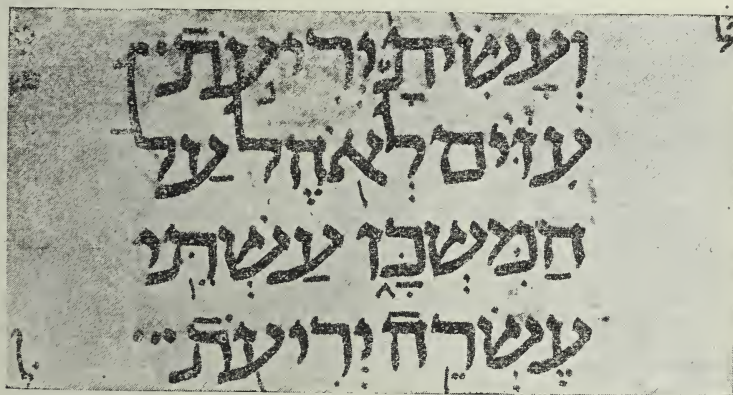 וְעָשִׂיתָ יְרִיעֹת
עִזִּים לְאֹהֶל עַל
הַמִּשְׁכָּ֑ן עַשְׁתֵּי
עֶשְׂרֵה יְרִיעֹת